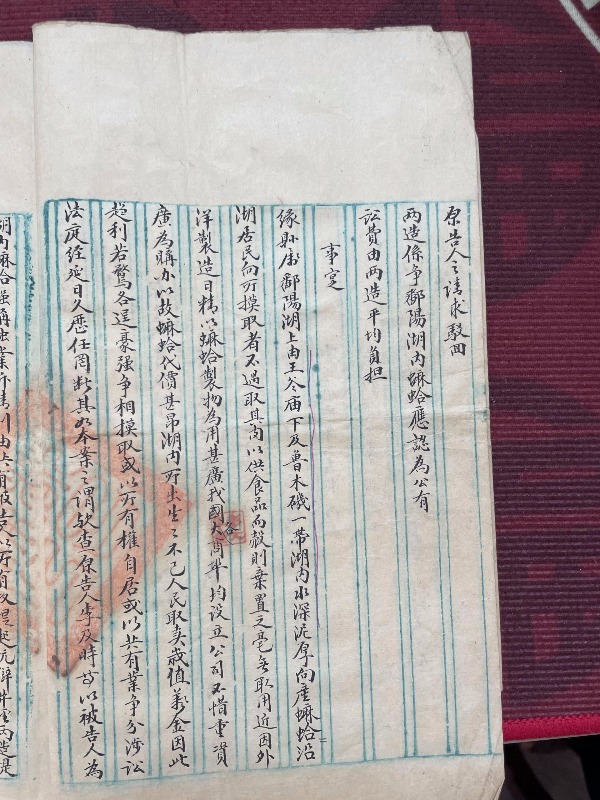 原告人之請求駁回
兩造係爭鄱陽湖內蝋蛤應認為公有
訟費由兩造平均負担
事實
緣縣屬鄱陽湖上由王爷庙下及魯木磯一帶湖內水深泥厚向產蝋蛤沿
湖居民向所摸取者不過取其肉以供食品而殼則棄置之毫無取用近因外
洋製造日精以蝋蛤製物為用甚廣我國各大商埠均設立公司不惜重資
廣為購办以故蝋蛤代價甚昂湖內所出生生不已人民取卖歲值萬金因此
趋利若鶩各逞豪强争相摸取或以所有權自居或以共有業争分涉訟
法庭經延日久歷任罔断其如本案之謂欤查原告人李及時等以被告人為
湖內蝋蛤强稱